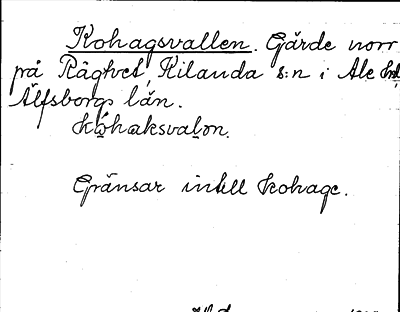 Kohagsvallen. Gärde norr
på Råghvet, Kilanda s:n i Ale hd
Älfsborgs län.
kóhaksvalon.
Gränsar intill kohage.